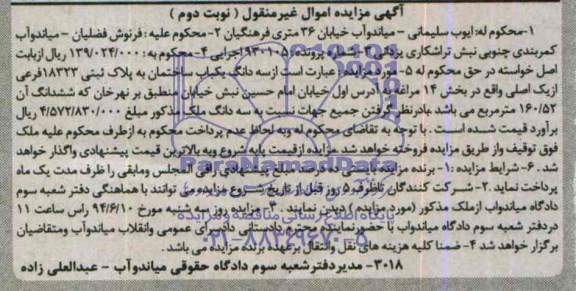 آگهی مزایده اموال غیرمنقول ( نوبت دوم )
۱-محکوم له: ایوب سلیمانی - میاندوآب خیابان ۳۶ متری فرهنگیان ۲- محکوم علیه: فرنوش فضلیان - میاندوآب
کمربندی جنوبی نبش تراشکاری یزدانی ۳- شماره پرونده: ۹۳۰۱۰۵ اجرایی ۴- محکوم به: ۱۳۹/۰۲۴/۰۰۰ ریال ازبابت
اصل خواسته در حق محکوم له ۵- موردمزایده: عبارت است ازسه دانگ یکباب ساختمان به پلاک ثبتی ۱۸۳۲۳ فرعی
ازیک اصلی واقع در بخش ۱۴ مراغه به آدرس اول خیابان امام حسین نبش خیابان منطبق بر نهرخان که ششدانگ آن
۱۶۰/۵۲ مترمربع می باشد .بادرنظرگرفتن جمیع جهات نسبت به سه دانگ ملک مذکور مبلغ ۴/۵۷۲/۸۳۰/۰۰۰ ریال
برآورد قیمت شده است . با توجه به تقاضای محکوم له وبه لحاظ عدم پرداخت محکوم به ازطرف محکوم علیه ملک
فوق توقیف واز طریق مزایده فروخته خواهد شد مزایده ازقیمت پایه شروع وبه بالاترین قیمت پیشنهادی واگذار خواهد
شد . ۶- شرایط مزایده : ۱- برنده مزایده بایستی ده درصد مبلغ پیشنهادی رافی المجلس ومابقی را ظرف مدت یک ماه
پرداخت نماید .۲- شرکت کنندگان تاظرف ۵ روز قبل از تاریخ شروع مزایده می توانند با هماهنگی دفتر شعبه سوم
دادگاه میاندواب ازملک مذکور (مورد مزایده ) دیدن نمایند . ۳- مزایده روز سه شنبه مورخ ۹۴/۶/۱۰ راس ساعت ۱۱
دردفتر شعبه سوم دادگاه میاندواب با حضورنماینده محترم دادستانی دادسرای عمومی وانقلاب میاندوآب ومتقاضیان
برگزار خواهد شد ۴- ضمنا کلیه هزینه های نقل وانتقال برعهده برنده مزایده می باشد.
۳۰۱۸- مدیردفتر شعبه سوم دادگاه حقوقی میاندوآب - عبدالعلی زاده
ParsNamadData
پایگاه اطلاع رسانی مناقصه و مزایده
۰۲۱-۸۸۳۴۹۶۷۰